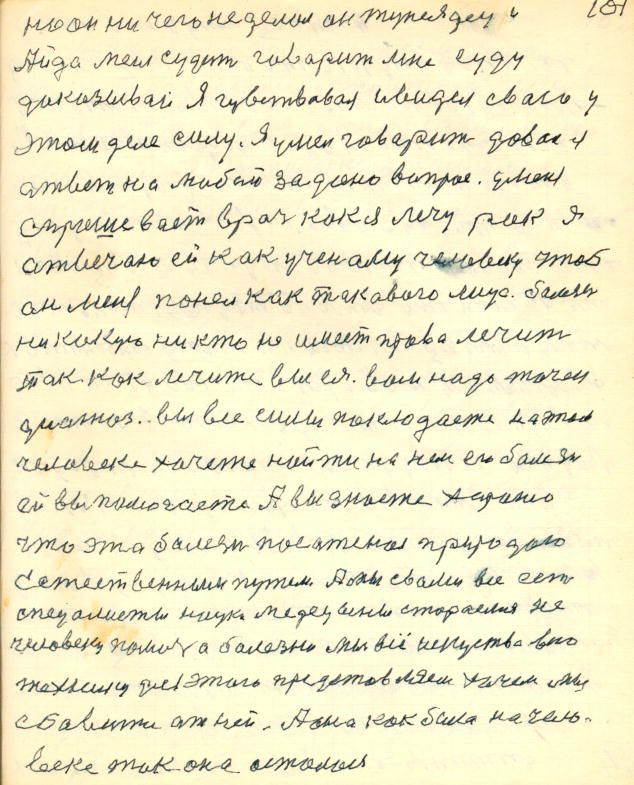 101
но он ни чего не делал он тунеядец и
Айда меня судит говорит мне суду
доказывай Я чувствовал и видел сваго у
этом деле силу. Я умел говорить довал я
атвет на любой задоно вапрос. у меня
спрашевает врач как я лечу рак я
атвечаю ей как ученаму человеку чтоб
он меня понел как такавого
никокую никто не имеет права лечит
так как лечите вы ея. вам надо точен
диагноз. вы все силы покладаете на этом
человеке хачете найти на нем его балезн
ей вы помогаете А вы знаете харашо
что эта балезн посаженая природаю
Естественным путем. А мы с вами все есть
специалисты наука медецены стараемся не
человеку помоч а балезни мы всі искуства всю
технику для этаго предоставляем хачем мы
сбавити ат ней. А она как была на чело-
веке так она осталась